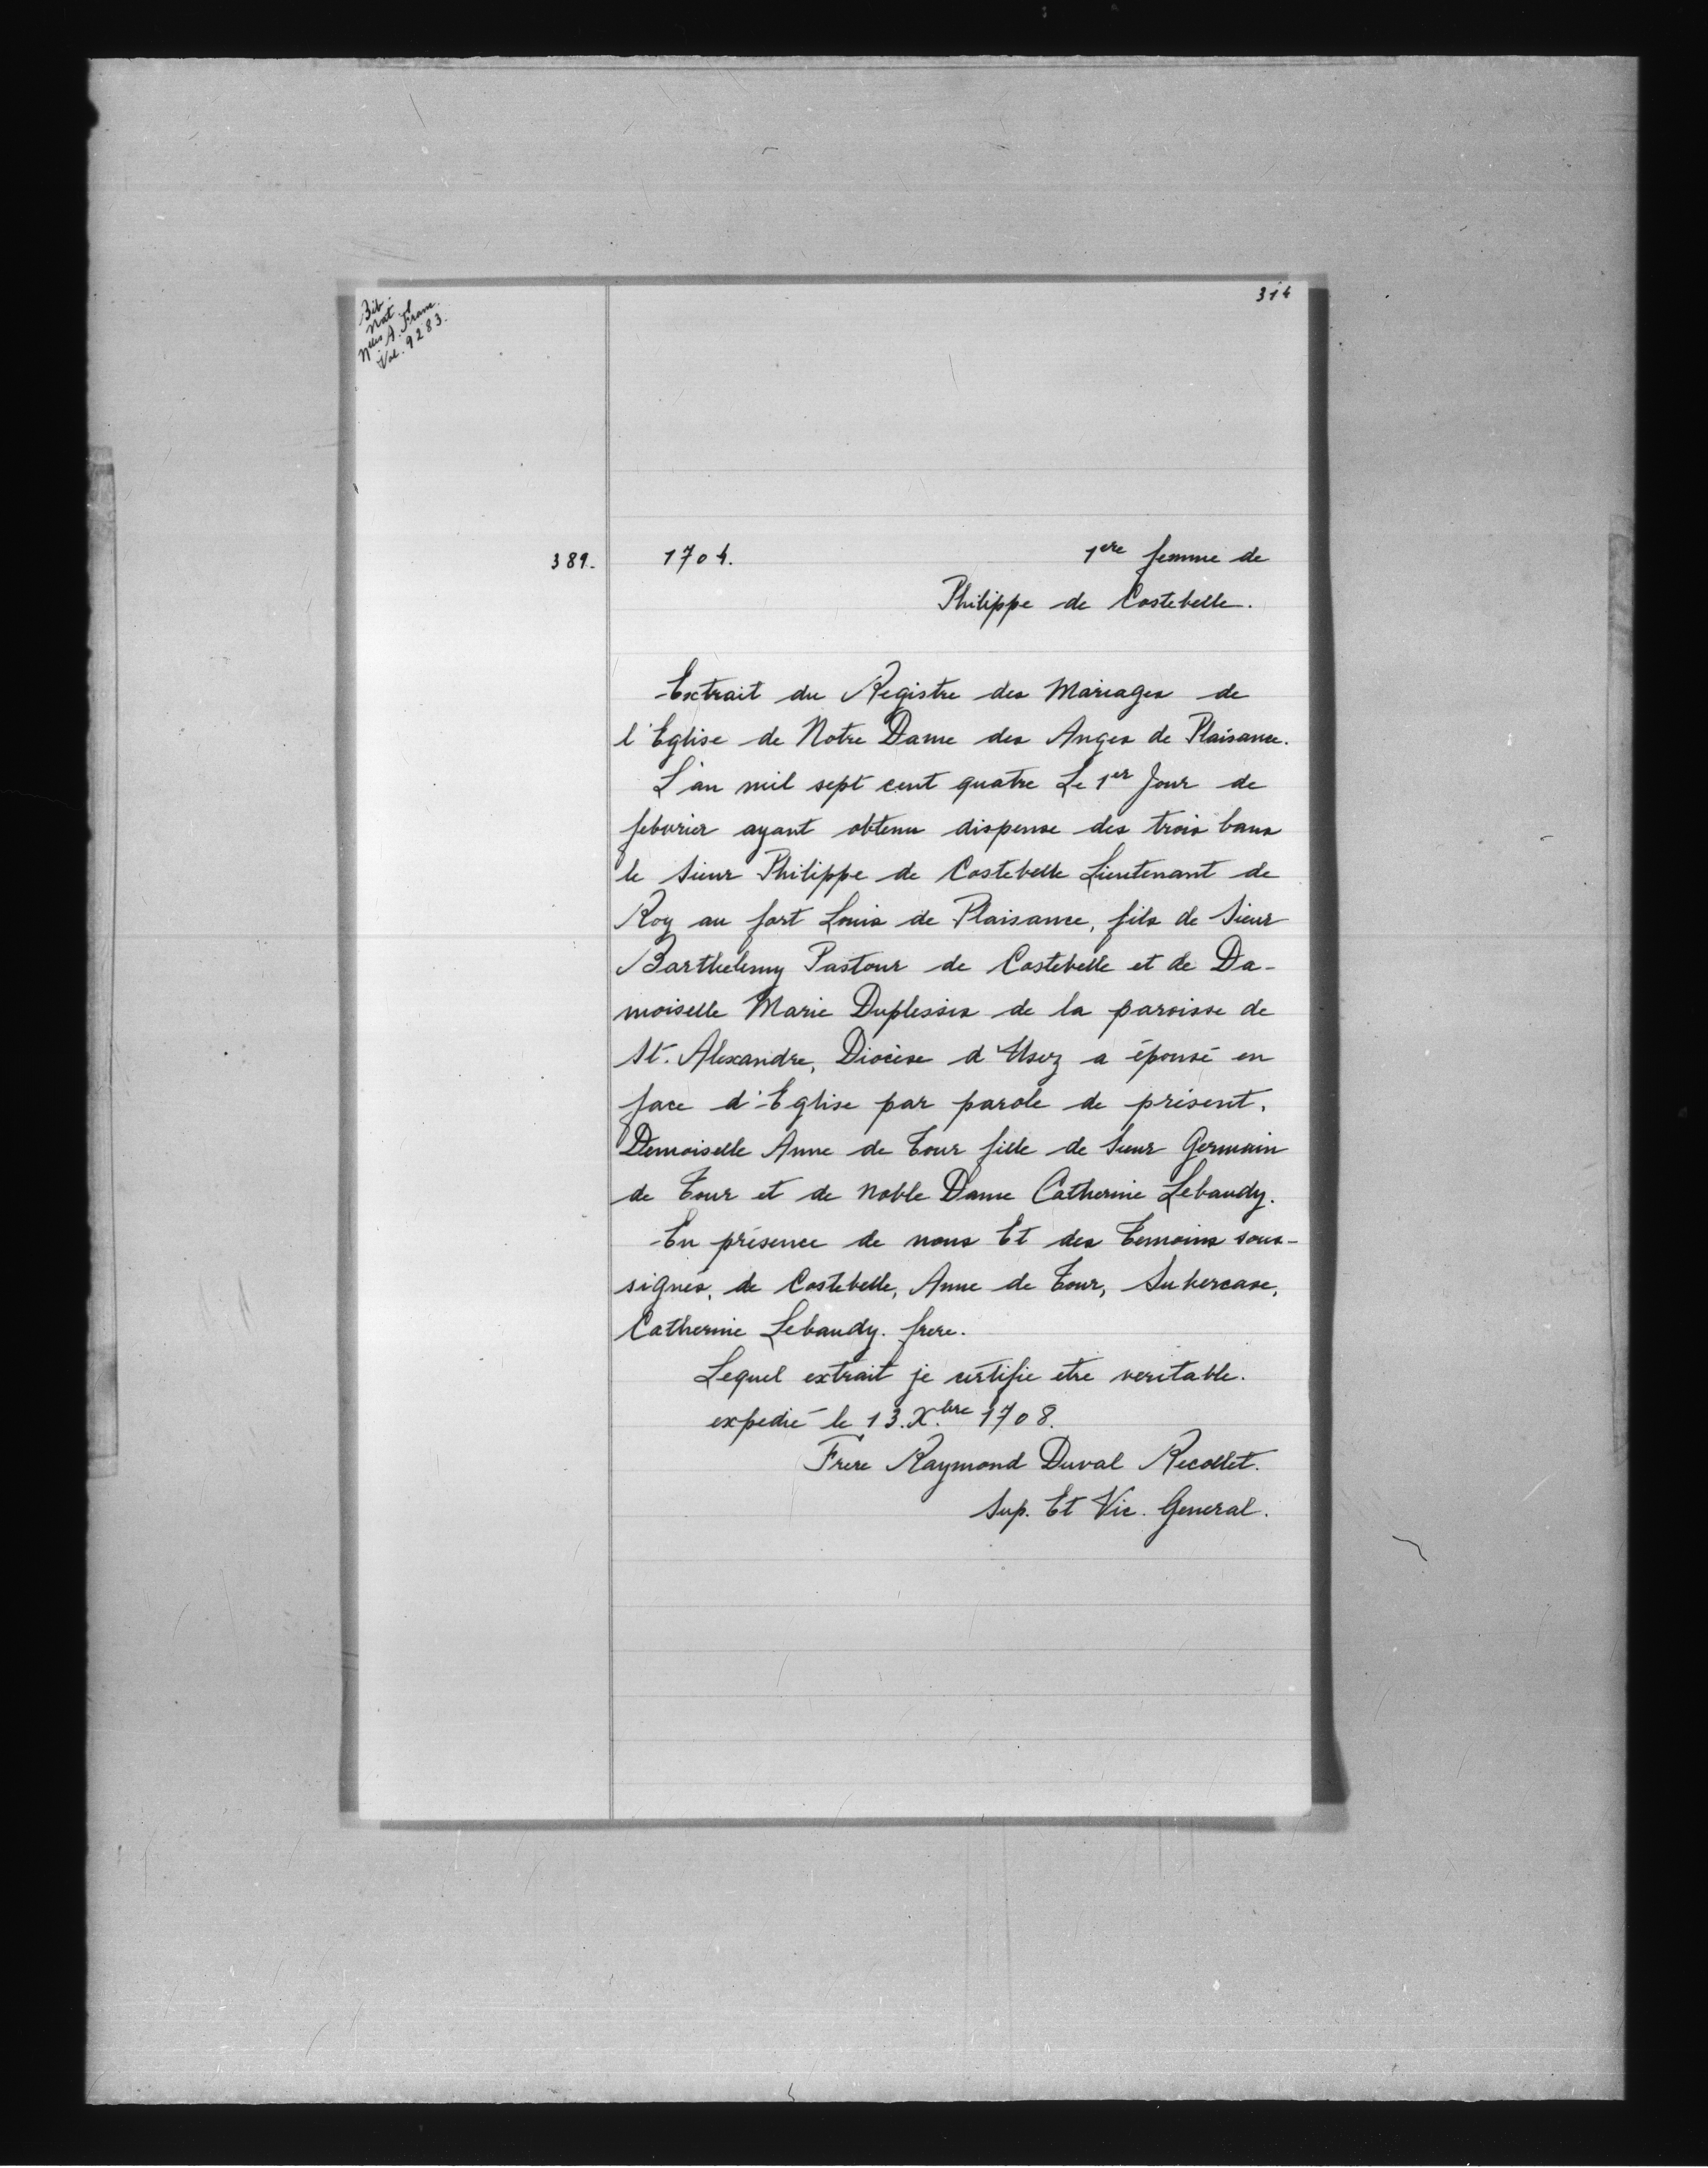 Bib.
Nat.
Nlles A. Franc.
Vol. 9283.
314
389.
1704. 1ere femme de
Philippe de Costebelle.
Extrait du Registre des Mariages de
l'Eglise de Notre Dame des Anges de Plaisance.
L'an mil sept cent quatre Le 1er Jour de
febvrier ayant obtenu dispense des trois bans
le Sieur Philippe de Costebelle Lieutenant de
Roy au fort Louis de Plaisance, fils de Sieur
Barthelemy Pastour de Costebelle et de Da-
moiselle Marie Duplessis de la paroisse de
St. Alexandre, Diocèse d'Usez a épousé en
face d'Eglise par parole de présent,
Demoiselle Anne de Tour fille de Sieur Germain
de Tour et de Noble Dame Catherine Lebaudy.
En présence de nous Et des Temoins sous-
signés, de Costebelle, Anne de Tour, Subercase,
Catherine Lebaudy. frere.
Lequel extrait je certifie etre veritable.
expedié le 13. Xbre 1708.
Frere Raymond Duval Recollet.
Sup. Et Vic. General.